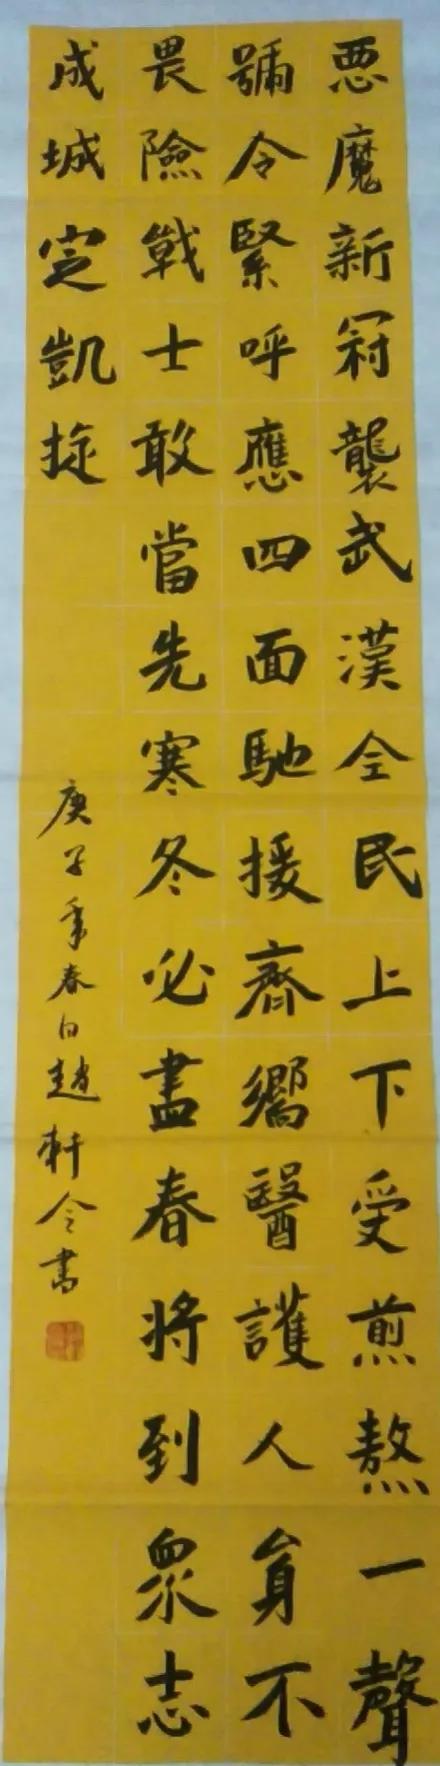 悪魔新冠襲武漢全民上下受煎熬一聲
號令緊呼應四面馳援齊嚮醫護人身不
畏險戰士敢當先寒冬必盡春將到眾志
成城定凱旋
庚子年春日趙軒令書